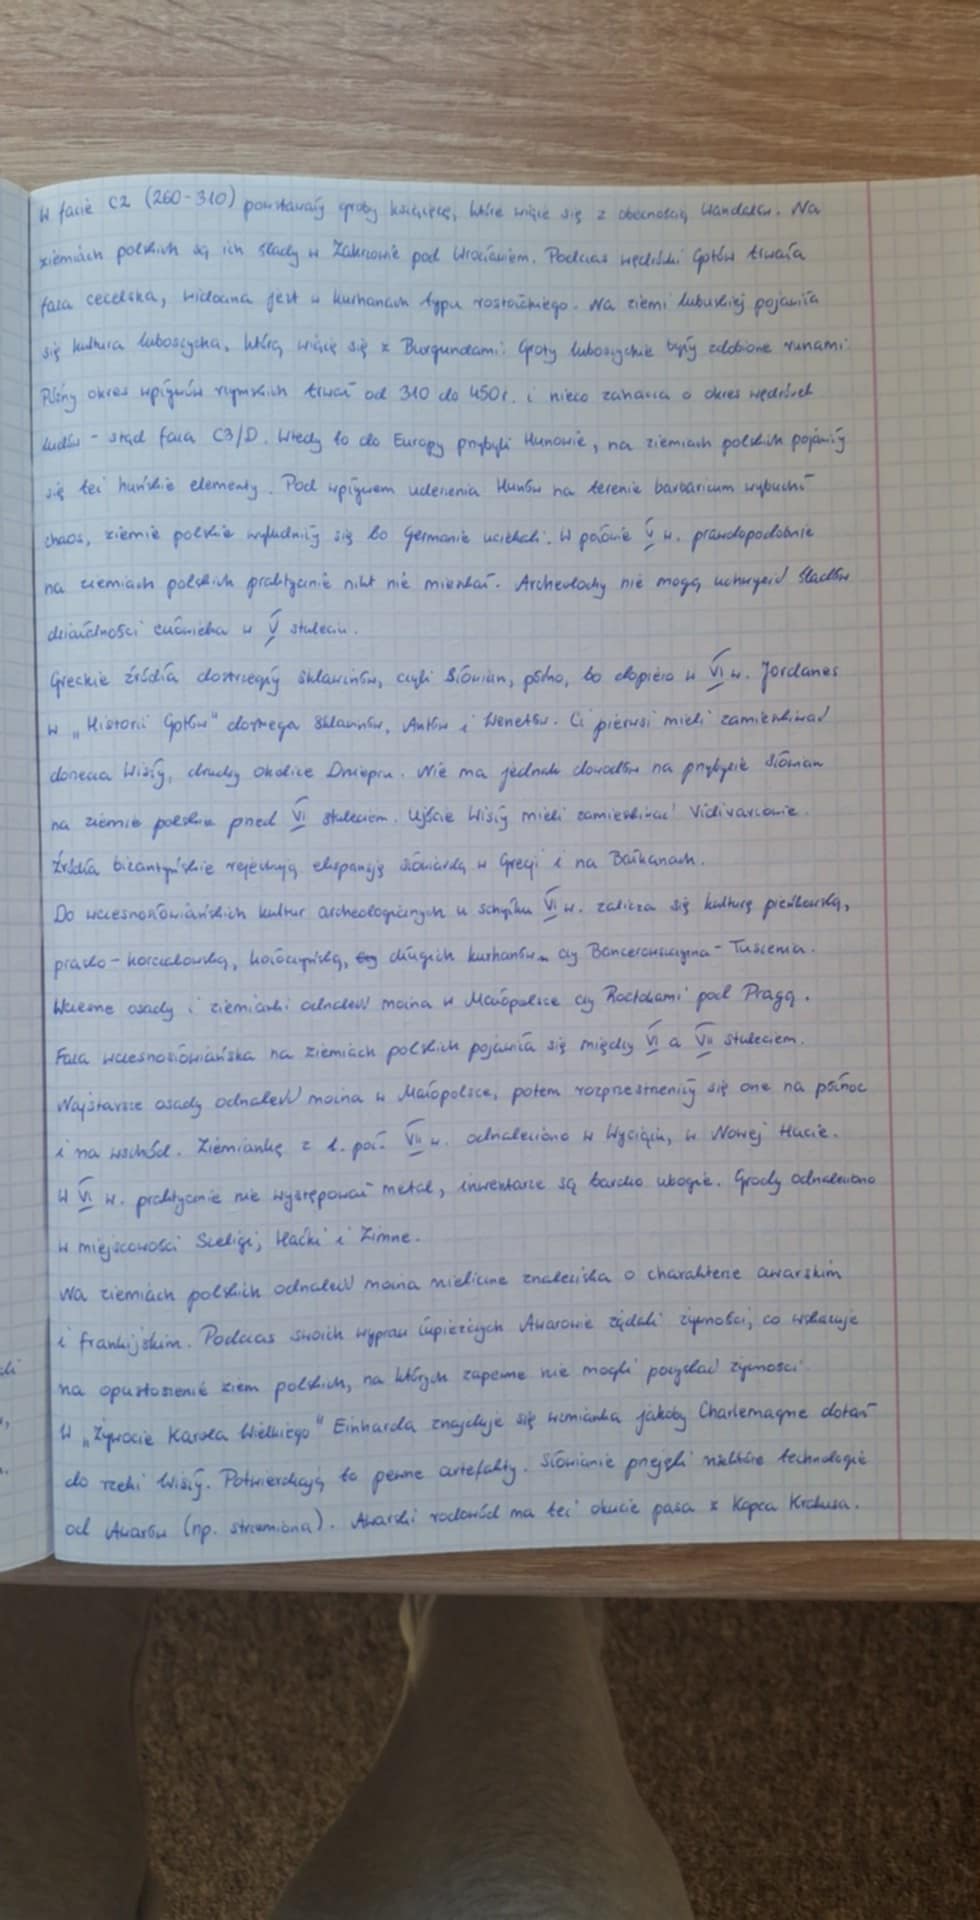 W fazie C2 (260-310) powstawały groby książęce, które wiąże się z obecnością Wandalów. Na
ziemiach polskich są ich ślady w Zakrzowie pod Wrocławiem. Podczas wędrówki Gotów trwała
faza cecelska, widoczna jest w kurhanach typu rostołckiego. Na ziemi lubuskiej pojawiła
się kultura luboszycka, którą wiąże się z Burgundami. Groty luboszyckie były zdobione runami.
Późny okres wpływów rzymskich trwał od 310 do 450r. i nieco zahacza o okres wędrówek
ludów - stąd faza C3/D. Wtedy to do Europy przybyli Hunowie, na ziemiach polskich pojawiły
się też huńskie elementy. Pod wpływem uderzenia Hunów na terenie barbaricum wybuchł
chaos, ziemie polskie wyludniły się bo Germanie uciekali. W połowie V w. prawdopodobnie
na ziemiach polskich praktycznie nikt nie mieszkał. Archeolodzy nie mogą uchwycić śladów
działalności człowieka w V stuleciu.
Greckie źródła dostrzegły Sklawinów, czyli Słowian, późno, bo dopiero w VI w. Jordanes
w „Historii Gotów" dostrzega Sklawinów, Antów i Wenetów. Ci pierwsi mieli zamieszkiwać
dorzecza Wisły, drudzy okolice Dniepru. Nie ma jednak dowodów na przybycie Słowian
na ziemie polskie przed VI stuleciem. Ujście Wisły mieli zamieszkiwać Vidivariowie.
Źródła bizantyńskie rejestrują ekspansję słowiańską w Grecji i na Bałkanach.
Do wczesnosłowiańskich kultur archeologicznych u schyłku VI w. zalicza się kulturę pieńkowską,
prasko-korczakowską, kołoczyńską, długich kurhanów czy Bancerowszczyzna-Tuszemla.
Wczesne osady i ziemianki odnaleźć można w Małopolsce czy Roztokami pod Pragą.
Faza wczesnosłowiańska na ziemiach polskich pojawia się między VI a VII stuleciem.
Najstarsze osady odnaleźć można w Małopolsce, potem rozprzestrzeniły się one na północ
i na wschód. Ziemiankę z 1. poł. VII w. odnaleziono w Wyciążu, w Nowej Hucie.
W VI w. praktycznie nie występował metal, inwentarze są bardzo ubogie. Grody odnaleziono
w miejscowości Szeligi, Haćki i Zimne.
Na ziemiach polskich odnaleźć można nieliczne znaleziska o charakterze awarskim
i frankijskim. Podczas swoich wypraw łupieżczych Awarowie żądali żywności, co wskazuje
na opustoszenie ziem polskich, na których zapewne nie mogli pozyskać żywności.
W „Żywocie Karola Wielkiego" Einharda znajduje się wzmianka jakoby Charlemagne dotarł
do rzeki Wisły. Potwierdzają to pewne artefakty. Słowianie przejęli niektóre technologie
od Awarów (np. strzemiona). Awarski rodowód ma też okucie pasa z Kopca Krakusa.